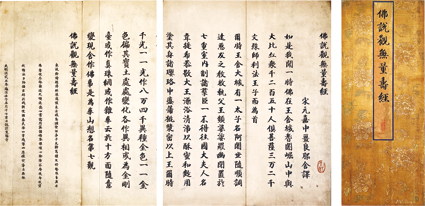 佛說觀無量壽經
佛說觀無量壽經
宋元嘉中畺良耶舍譯
如是我聞一時佛在王舍城耆闍崛山中與
大比丘衆千二百五十人俱菩薩三萬二千
文殊師利法王子而為首
爾時王舍大城有一太子名阿闍世隨順調
達惡友之教收執父王頻婆娑羅幽閉置於
七重室內制諸羣臣一不得往國大夫人名
韋提希恭敬大王澡浴清淨以酥蜜和麨用
塗其身諸瓔珞中盛葡萄漿密以上王爾時
千光一一光作八萬四千異種金色一一金
色徧其寶土處處變化各作異相或為金剛
臺或作真珠網或作雜華雲於十方面隨意
變現施作佛事是為華座想名第七觀
佛說觀無量壽經